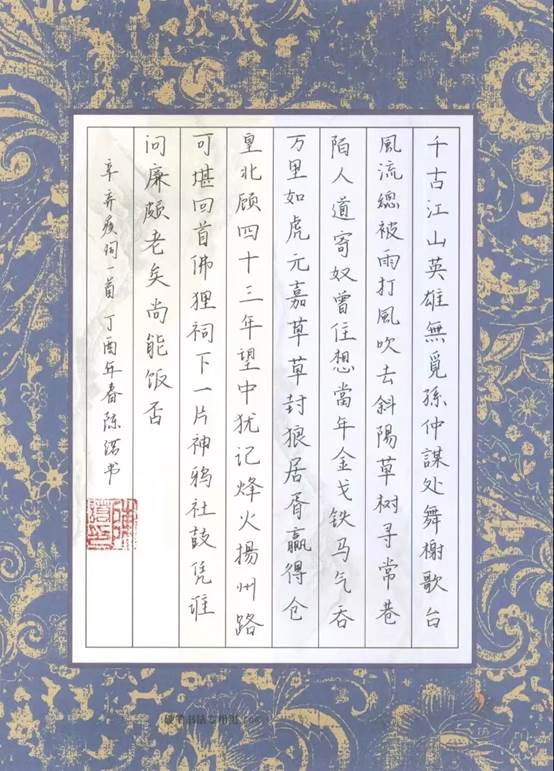 千古江山英雄無覓孫仲謀处舞榭歌台
風流總被雨打風吹去斜陽草树寻常巷
陌人道寄奴曾住想當年金戈铁马气吞
万里如虎元嘉草草封狼居胥赢得仓
皇北顾四十三年望中犹记烽火揚州路
可堪回首佛狸祠下一片神鸦社鼓凭谁
问廉颇老矣尚能饭否
辛弃疾词一首 丁酉年春陈书
硬笔书法专用纸